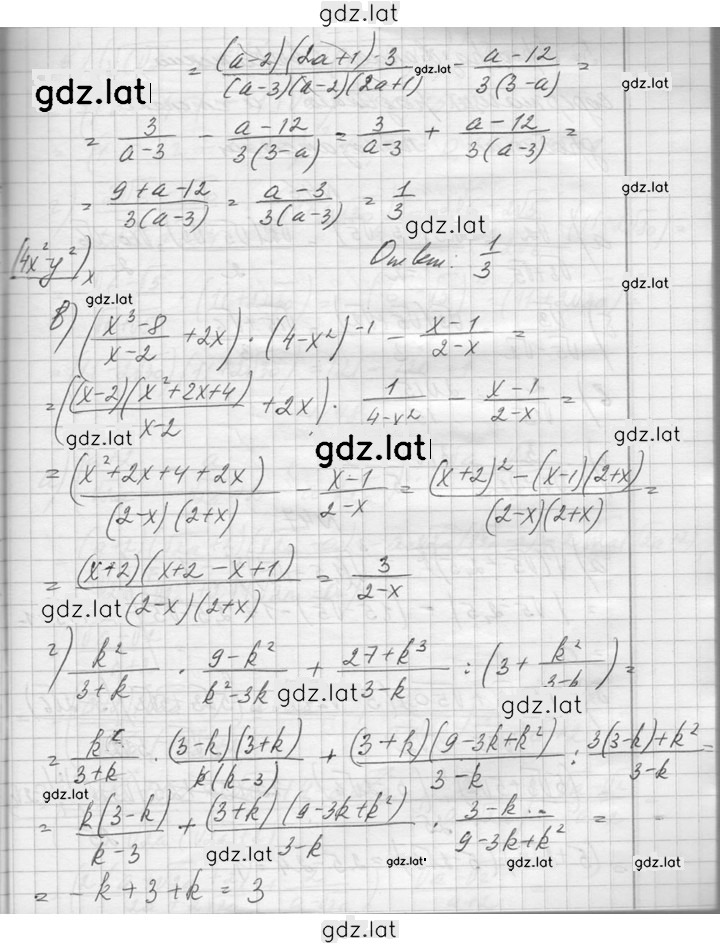 gdz.lat
= ((a-2)(2a+1)·3)/((a-3)(a-2)(2a+1)) - (a-12)/(3(3-a)) =
gdz.lat
gdz.lat
gdz.lat
= 3/(a-3) - (a-12)/(3(3-a)) = 3/(a-3) + (a-12)/(3(a-3)) =
gdz.lat
= (9+a-12)/(3(a-3)) = (a-3)/(3(a-3)) = 1/3
gdz.lat
gdz.lat
(4x²-y²)x
Ответ: 1/3
gdz.lat
gdz.lat
в) ((x³-8)/(x-2) + 2x) · (4-x²)⁻¹ - (x-1)/(2-x) =
= ((x-2)(x²+2x+4)/(x-2) + 2x) · 1/(4-x²) - (x-1)/(2-x) =
gdz.lat
gdz.lat
gdz.lat
= (x²+2x+4+2x)/((2-x)(2+x)) - (x-1)/(2-x) = ((x+2)²-(x-1)(2+x))/((2-x)(2+x)) =
= ((x+2)(x+2-x+1))/((2-x)(2+x)) = 3/(2-x)
gdz.lat
г) k²/(3+k) · (9-k²)/(k²-3k) + (27+k³)/(3-k) : (3 + k²/(3-k)) =
gdz.lat
gdz.lat
= k²/(3+k) · ((3-k)(3+k))/(k(k-3)) + ((3+k)(9-3k+k²))/(3-k) : (3(3-k)+k²)/(3-k) =
gdz.lat
= (k(3-k))/(k-3) + ((3+k)(9-3k+k²))/(3-k) · (3-k)/(9-3k+k²) =
gdz.lat
gdz.lat
gdz.lat
gdz.lat
= -k+3+k = 3
gdz.lat